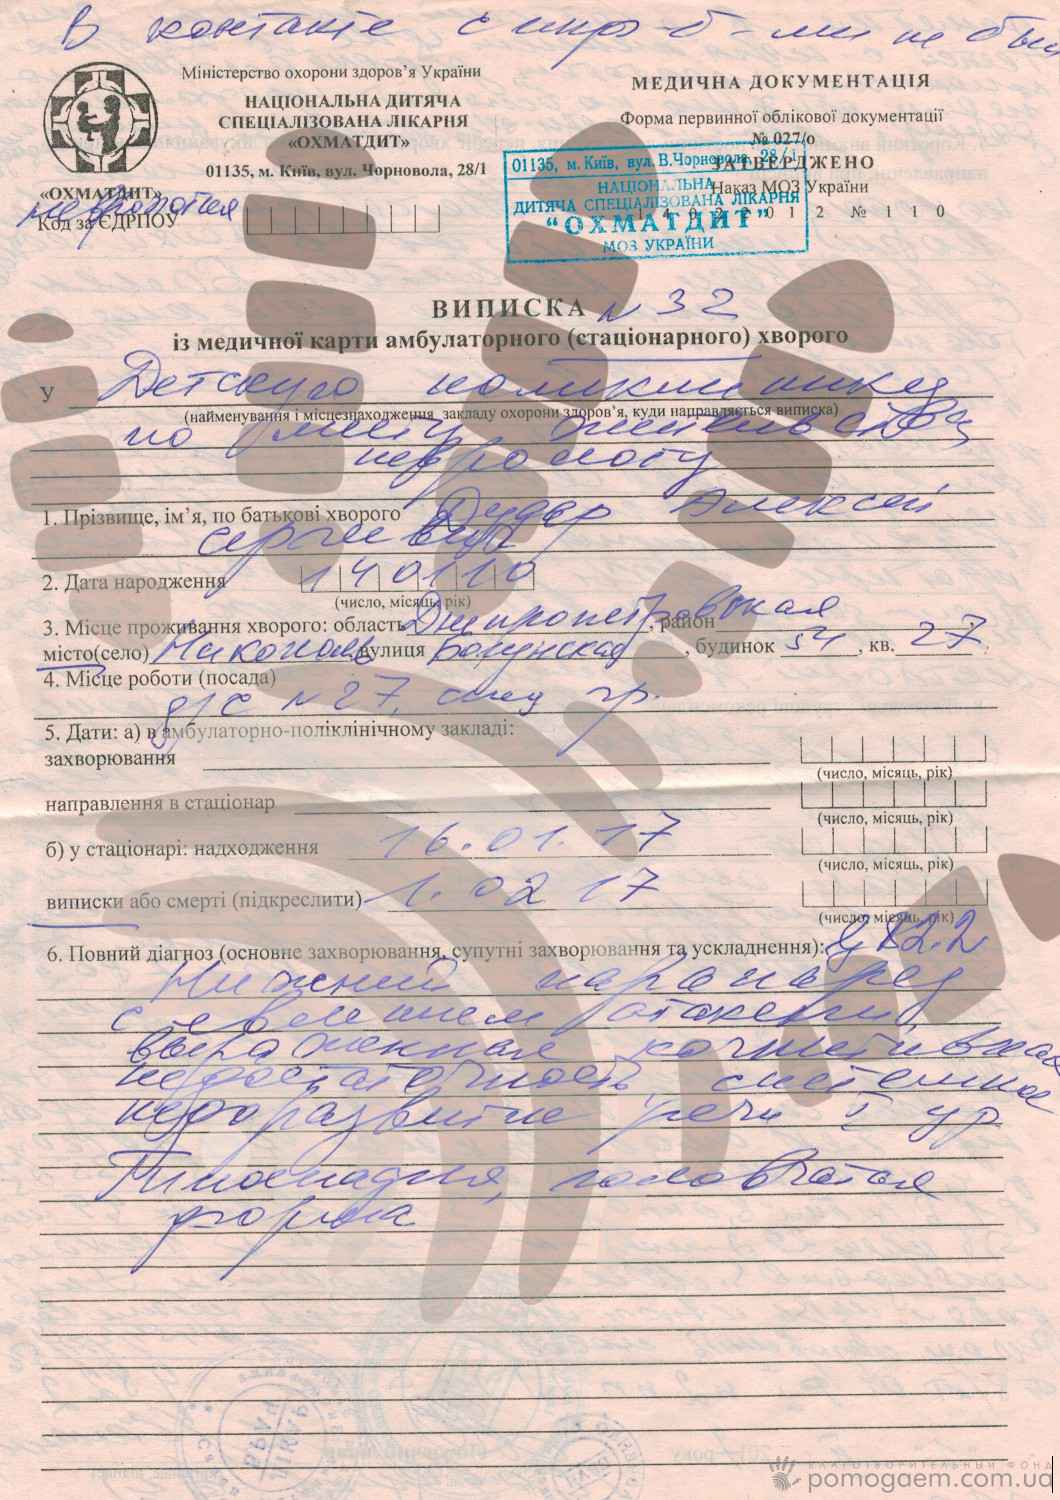 В контакте с инф. б-ми не был
Міністерство охорони здоров'я України
НАЦІОНАЛЬНА ДИТЯЧА
СПЕЦІАЛІЗОВАНА ЛІКАРНЯ
«ОХМАТДИТ»
01135, м. Київ, вул. Чорновола, 28/1
«ОХМАТДИТ»
неврология
Код за ЄДРПОУ
МЕДИЧНА ДОКУМЕНТАЦІЯ
Форма первинної облікової документації
№ 027/о
ЗАТВЕРДЖЕНО
Наказ МОЗ України
14022012 №110
01135, м. Київ, вул. В.Чорновола, 28/1
НАЦІОНАЛЬНА
ДИТЯЧА СПЕЦІАЛІЗОВАНА ЛІКАРНЯ
"ОХМАТДИТ"
МОЗ УКРАЇНИ
ВИПИСКА N 32
із медичної карти амбулаторного (стаціонарного) хворого
У Детскую поликлинику
(найменування і місцезнаходження закладу охорони здоров'я, куди направляється виписка)
по месту жительства
неврологу
1. Прізвище, ім'я, по батькові хворого Дудар Алексей
Сергеевич
2. Дата народження 140110
(число, місяць, рік)
3. Місце проживання хворого: область Днепропетровская, район
місто(село) Никополь, вулиця, будинок 54, кв. 27
4. Місце роботи (посада)
д/с N 27, спец гр.
5. Дати: а) в амбулаторно-поліклінічному закладі:
захворювання
(число, місяць, рік)
направлення в стаціонар
(число, місяць, рік)
б) у стаціонарі: надходження 16.01.17
(число, місяць, рік)
виписки або смерті (підкреслити) 1.02 17
(число, місяць, рік)
6. Повний діагноз (основне захворювання, супутні захворювання та ускладнення): 82.2
Нижний парапарез
с явлением атаксии,
выраженная когнитивная
недостаточность системное
недоразвитие речи I ур
Гипоспадия, головчатая
форма
БЛАГОТВОРИТЕЛЬНЫЙ ФОНД
pomogaem.com.ua